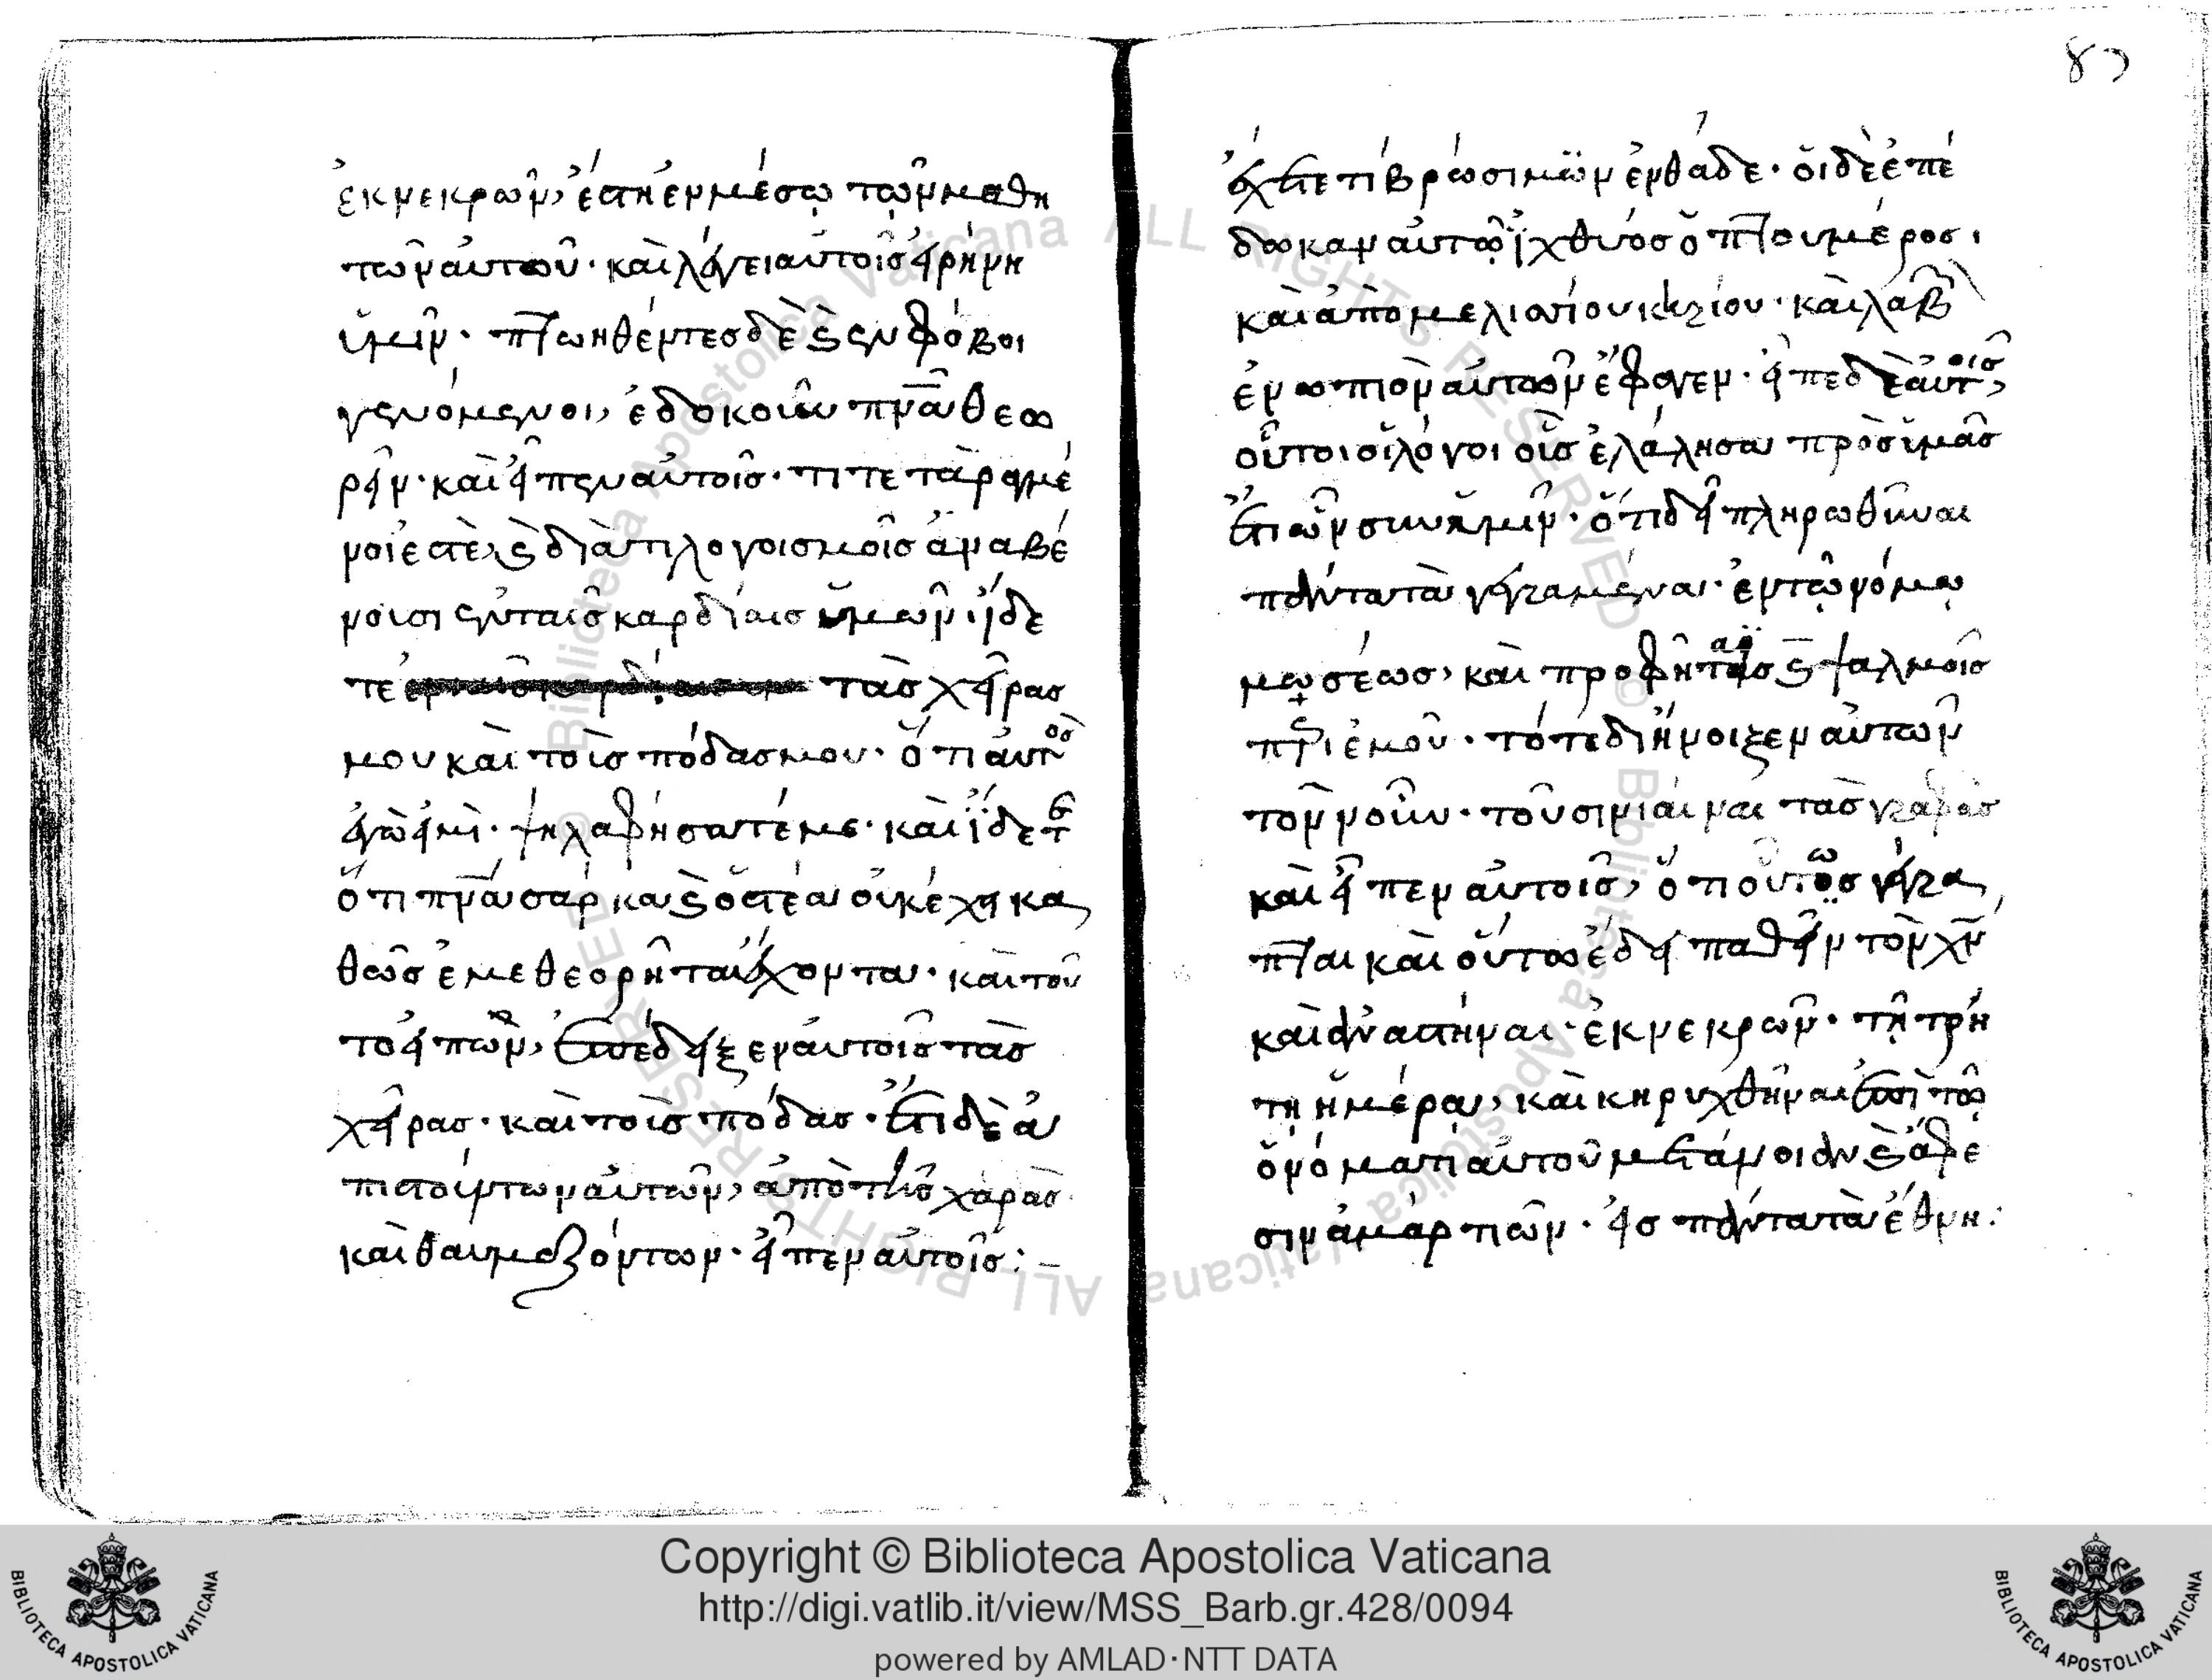 ἐκ νεκρῶν, ἔστη ἐν μέσῳ τῶν μαθη
τῶν αὐτοῦ· καὶ λέγει αὐτοῖς εἰρήνη
ὑμῖν· πτωηθέντες δὲ ϗ ἐνφόβοι
γενόμενοι, ἐδοκουν πνᾶ θεω
ρεῖν· καὶ εἶπεν αὐτοῖς· τι τεταραγμέ
νοι ἐστὲ, ϗ διὰ τι λογοισμοῖς ἀναβέ
νοισι ἐν ταῖς καρδίαις ὑμῶν· ἴδε
τε τὰς χεῖρας
μου καὶ τοὶς πόδας μου· ὅτι αὐτὸς
ἐγὼ εἰμὶ· ψηλαφήσατέ με· καὶ ἴδετε
ὅτι πνᾶ σάρκα ϗ ὀστέα οὐκ έχει κα
θῶς ἐμὲ θεορῆται έχοντα· καὶ τοῦ
το εἰπὼν, ἐπέδειξεν αὐτοῖς τὰς
χεῖρας· καὶ τοὶς πόδας· ἔτι δὲ ἀ
πιστοίντων αὐτῶν, ἀπὸ τῆς χαρᾶς
καὶ θαυμαζόντων· εἶπεν αὐτοῖς:–
87
ἔχετε τί βρώσιμων ἐνθάδε· ὅι δὲ ἐπέ
δωκαν αὐτῶ ἰχθυόσ ὀπτου μέρος·
καὶ ἀπὸ μελισίου κηρίου· καὶ λαβὼν
ἐνωπιον αὐτῶν ἔφαγεν· εἶπε δὲ αὐτοῖς,
οὗτοι οἱ λόγοι οἷς ἐλάλησα πρὸς ὑμᾶς
ἔτι ὢν σιν ὑμῖν· ὅτι δεῖ πληρωθῆναι
πάντα τὰ γεγραμένα· ἐν τῷ νόμῳ
μωσέως, καὶ προφήταις ϗ ψαλμοῖς
περὶ ἐμοῦ· τότε διήνοιξεν αὐτῶν
τον νοῦν· τοῦ σινιέναι τὰς γραφὰς
καὶ εἶπεν αὐτοῖς, ὅτι οὕτως γέγρα
πται καὶ οὕτω ἔδει παθεῖν τὸν χν
καὶ ἀναστῆναι· ἐκ νεκρῶν· τῇ τρή
τῃ ἡμέρα, καὶ κηρυχθῆναι ἐπὶ τῷ
ὀνόματι αὐτοῦ μετάνοιαν ϗ ἄφε
σιν ἁμαρτιῶν· εἰς πάντα τὰ έθνη:
Copyright © Biblioteca Apostolica Vaticana
http://digi.vatlib.it/view/MSS_Barb.gr.428/0094
powered by AMLAD·NTT DATA
BIBLIOTECA APOSTOLICA VATICANA
BIBLIOTECA APOSTOLICA VATICANA